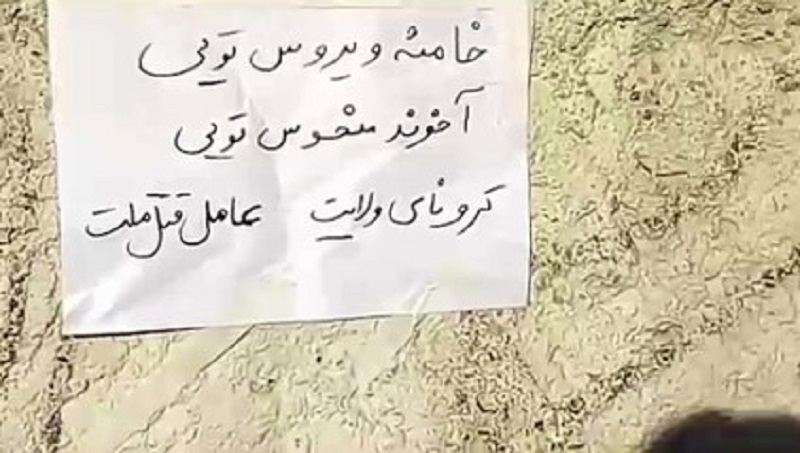 خامنه ویروس تویی
آخوند منحوس تویی
کرونای ولایت عامل قتل ملت